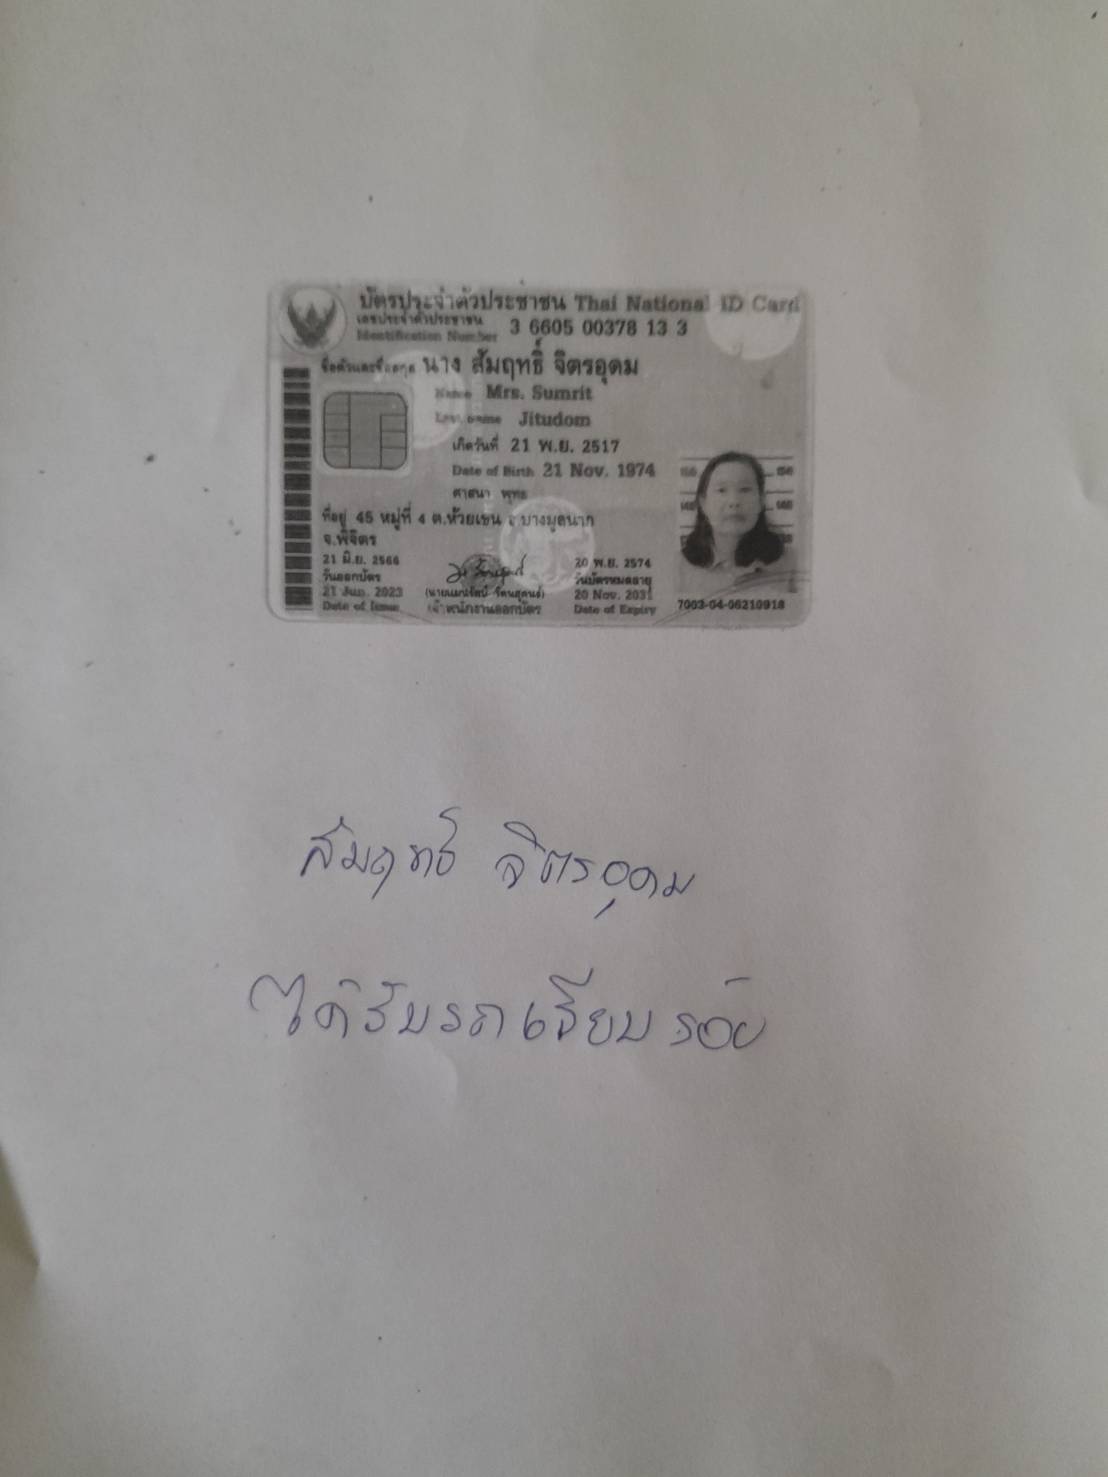 บัตรประจำตัวประชาชน Thai National ID Card
เลขประจำตัวประชาชน
Identification Number 3 6605 00378 13 3
ชื่อตัวและชื่อสกุล นาง สัมฤทธิ์ จิตรอุดม
Name Mrs. Sumrit
Last name Jitudom
เกิดวันที่ 21 พ.ย. 2517
Date of Birth 21 Nov. 1974
ศาสนา พุทธ
ที่อยู่ 45 หมู่ที่ 4 ต.ห้วยเขน อ.บางมูลนาก
จ.พิจิตร
21 มิ.ย. 2566
วันออกบัตร
21 Jun. 2023
Date of Issue
เจ้าพนักงานออกบัตร
20 พ.ย. 2574
วันบัตรหมดอายุ
20 Nov. 2031
Date of Expiry
7003-04-06210918
สัมฤทธิ์ จิตรอุดม
ได้รับรถเรียบร้อย